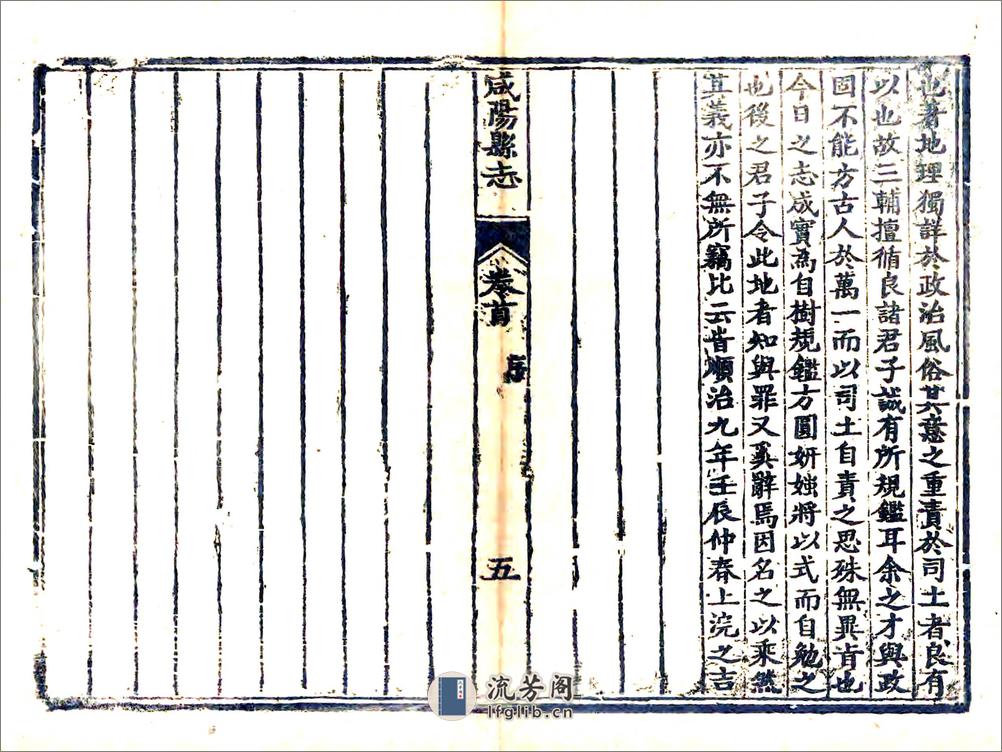 也著地理獨詳於政治風俗其意之重責於司土者良有
以也故三輔擅循良諸君子誠有所規鑑耳余之才與政
固不能方古人於萬一而以司土自責之思殊無異肯也
今日之志成實為自樹規鑑方圓妍媸將以式而自勉之
也後之君子令此地者知與罪又奚辭焉因名之以乘然
其義亦不無所竊比云旹順治九年壬辰仲春上浣之吉
咸陽縣志
卷首
序
五
流芳阁
lfglib.cn